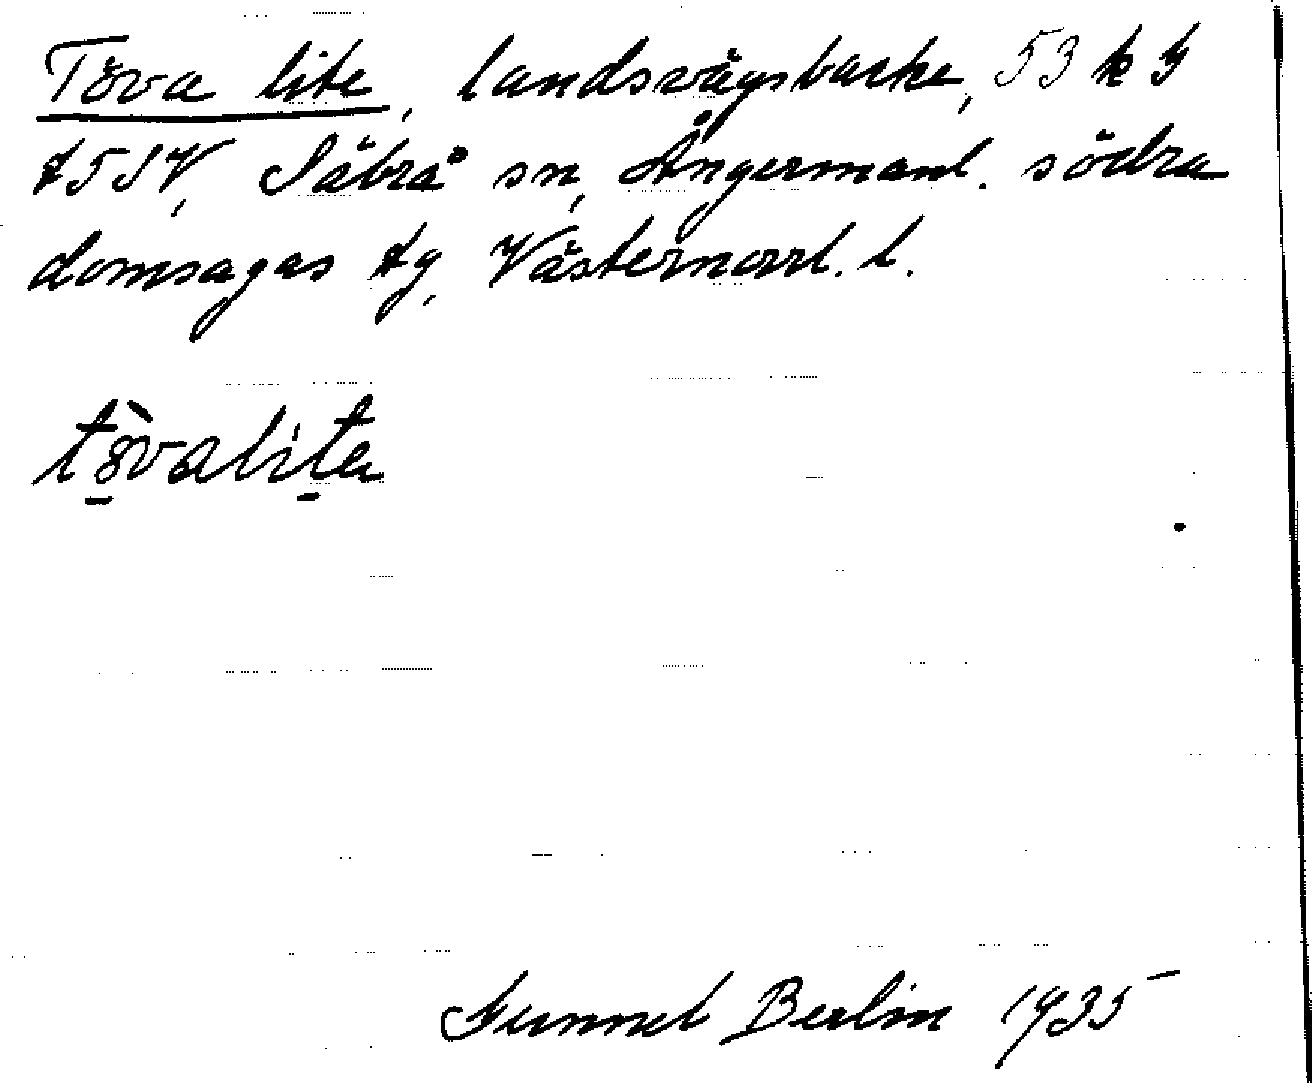 Töva lite, landsvägsbacke, 53 k g
t 5 S V, Säbrå sn, Ångermanl. södra
domsagas tg, Västernorrl. l.
tövalita
Gunnel Berlin 1935